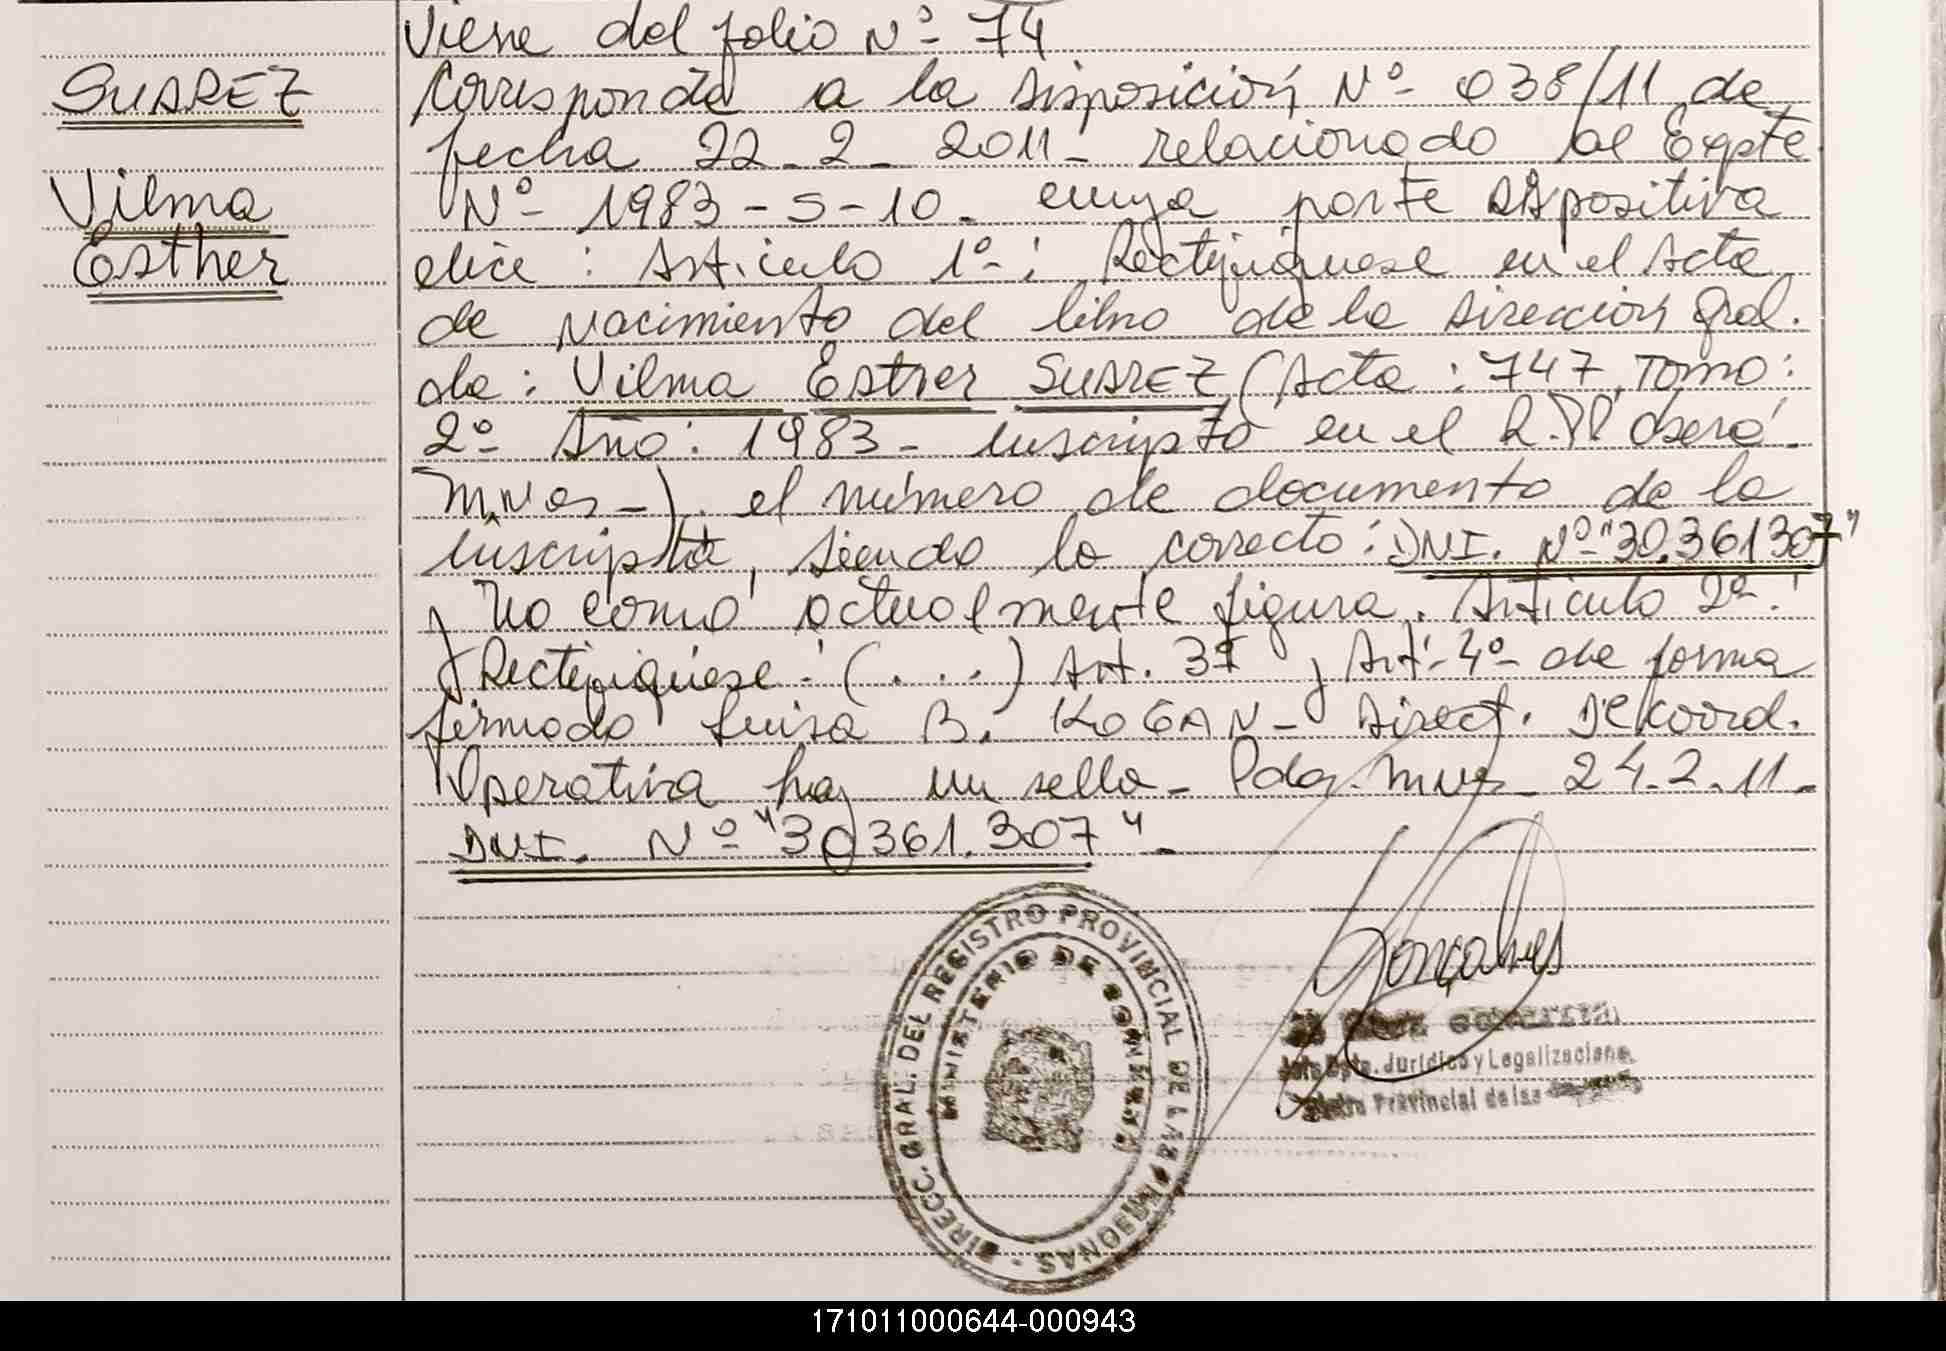 Viene del folio Nº 74
SUAREZ
Corresponde a la Disposición Nº 038/11 de
fecha 22-2-2011- relacionado al Expte
Vilma
Nº 1983-S-10- cuya parte dispositiva
Esther
dice: Artículo 1º-: Rectifíquese en el Acta
de Nacimiento del libro de la Dirección Gral.
de: Vilma Esther SUAREZ (Acta: 747, Tomo:
2º Año: 1983- Inscripto en el R.PP Oberá
Mnes-). el número de documento de la
inscripta, siendo lo correcto: DNI. Nº "30.361307"
y no como actualmente figura. Artículo 2º:
Rectifíquese: (...) Art. 3º y Art. 4º de forma
firmado Luisa B. KOGAN- Direct. De Coord.
Operativa hay un sello- Pdas. Mnes- 24.2.11-
DNI. Nº "30361.307"-
DIRECC. GRAL. DEL REGISTRO PROVINCIAL DE LAS PERSONAS
MINISTERIO DE GOBIERNO
Gonçalves
Jefe Dpto. Jurídico y Legalizacione
Provincial de las
171011000644-000943